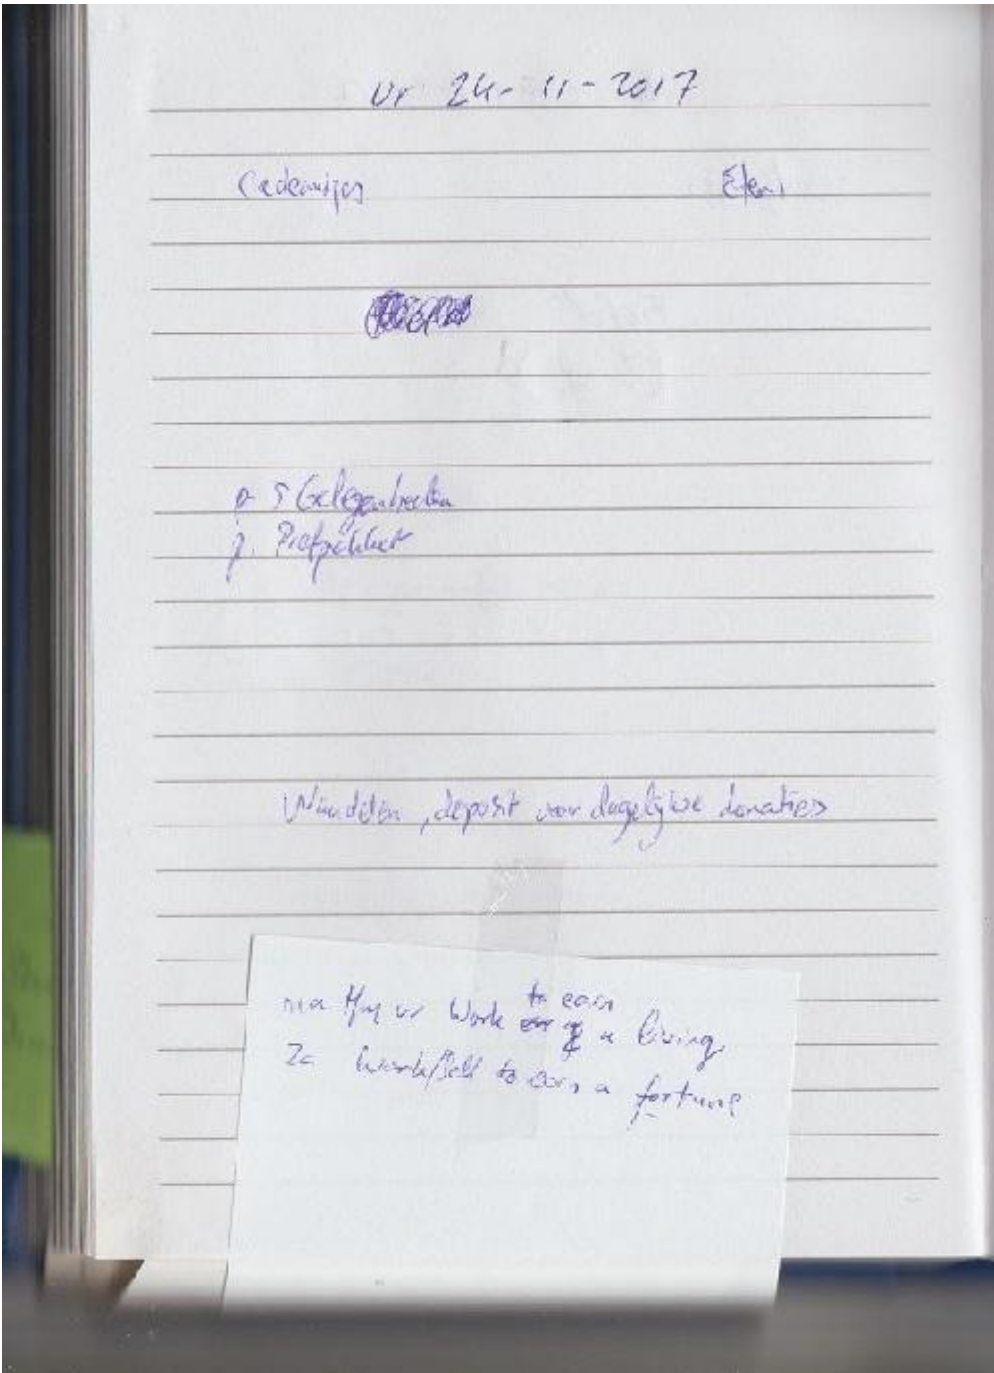 vr 24-11-2017
Eten
5 Gelegenheden
Pretpakket
Wandelen, deposit voor dagelijkse donaties
ma t/m vr Work to earn a living
Za work/sell to earn a fortune